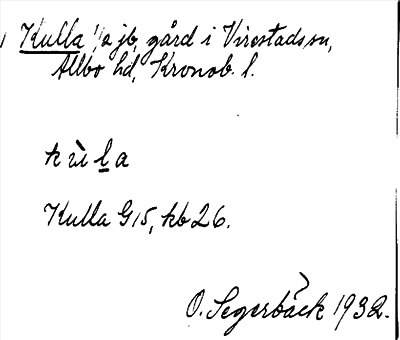 Kulla 1/2 jb, gård i Virestads sn,
Allbo hd, Kronob. l.
Kulla G15, kb 26.
O. Segerbäck 1932.